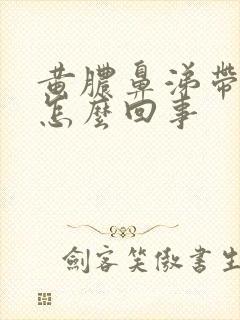 黄膿鼻涕帶
怎麼回事
劍客笑傲書生